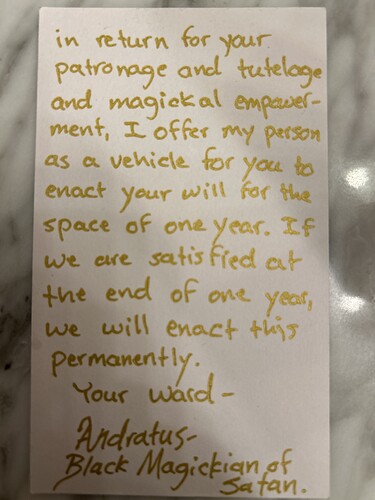 in return for your
patronage and tutelage
and magickal empower-
ment, I offer my person
as a vehicle for you to
enact your will for the
space of one year. If
we are satisfied at
the end of one year,
we will enact this
permanently.
Your ward-
Andratus-
Black Magickian of
Satan.